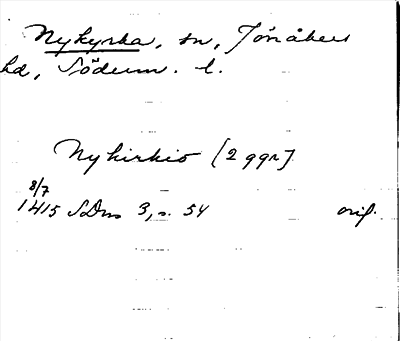 Nykyrka, sn, Jönåkers
hd, Söderm. l.
Nykirkio [2 ggr]
8/7
1415 SDns 3, s. 54 orig.